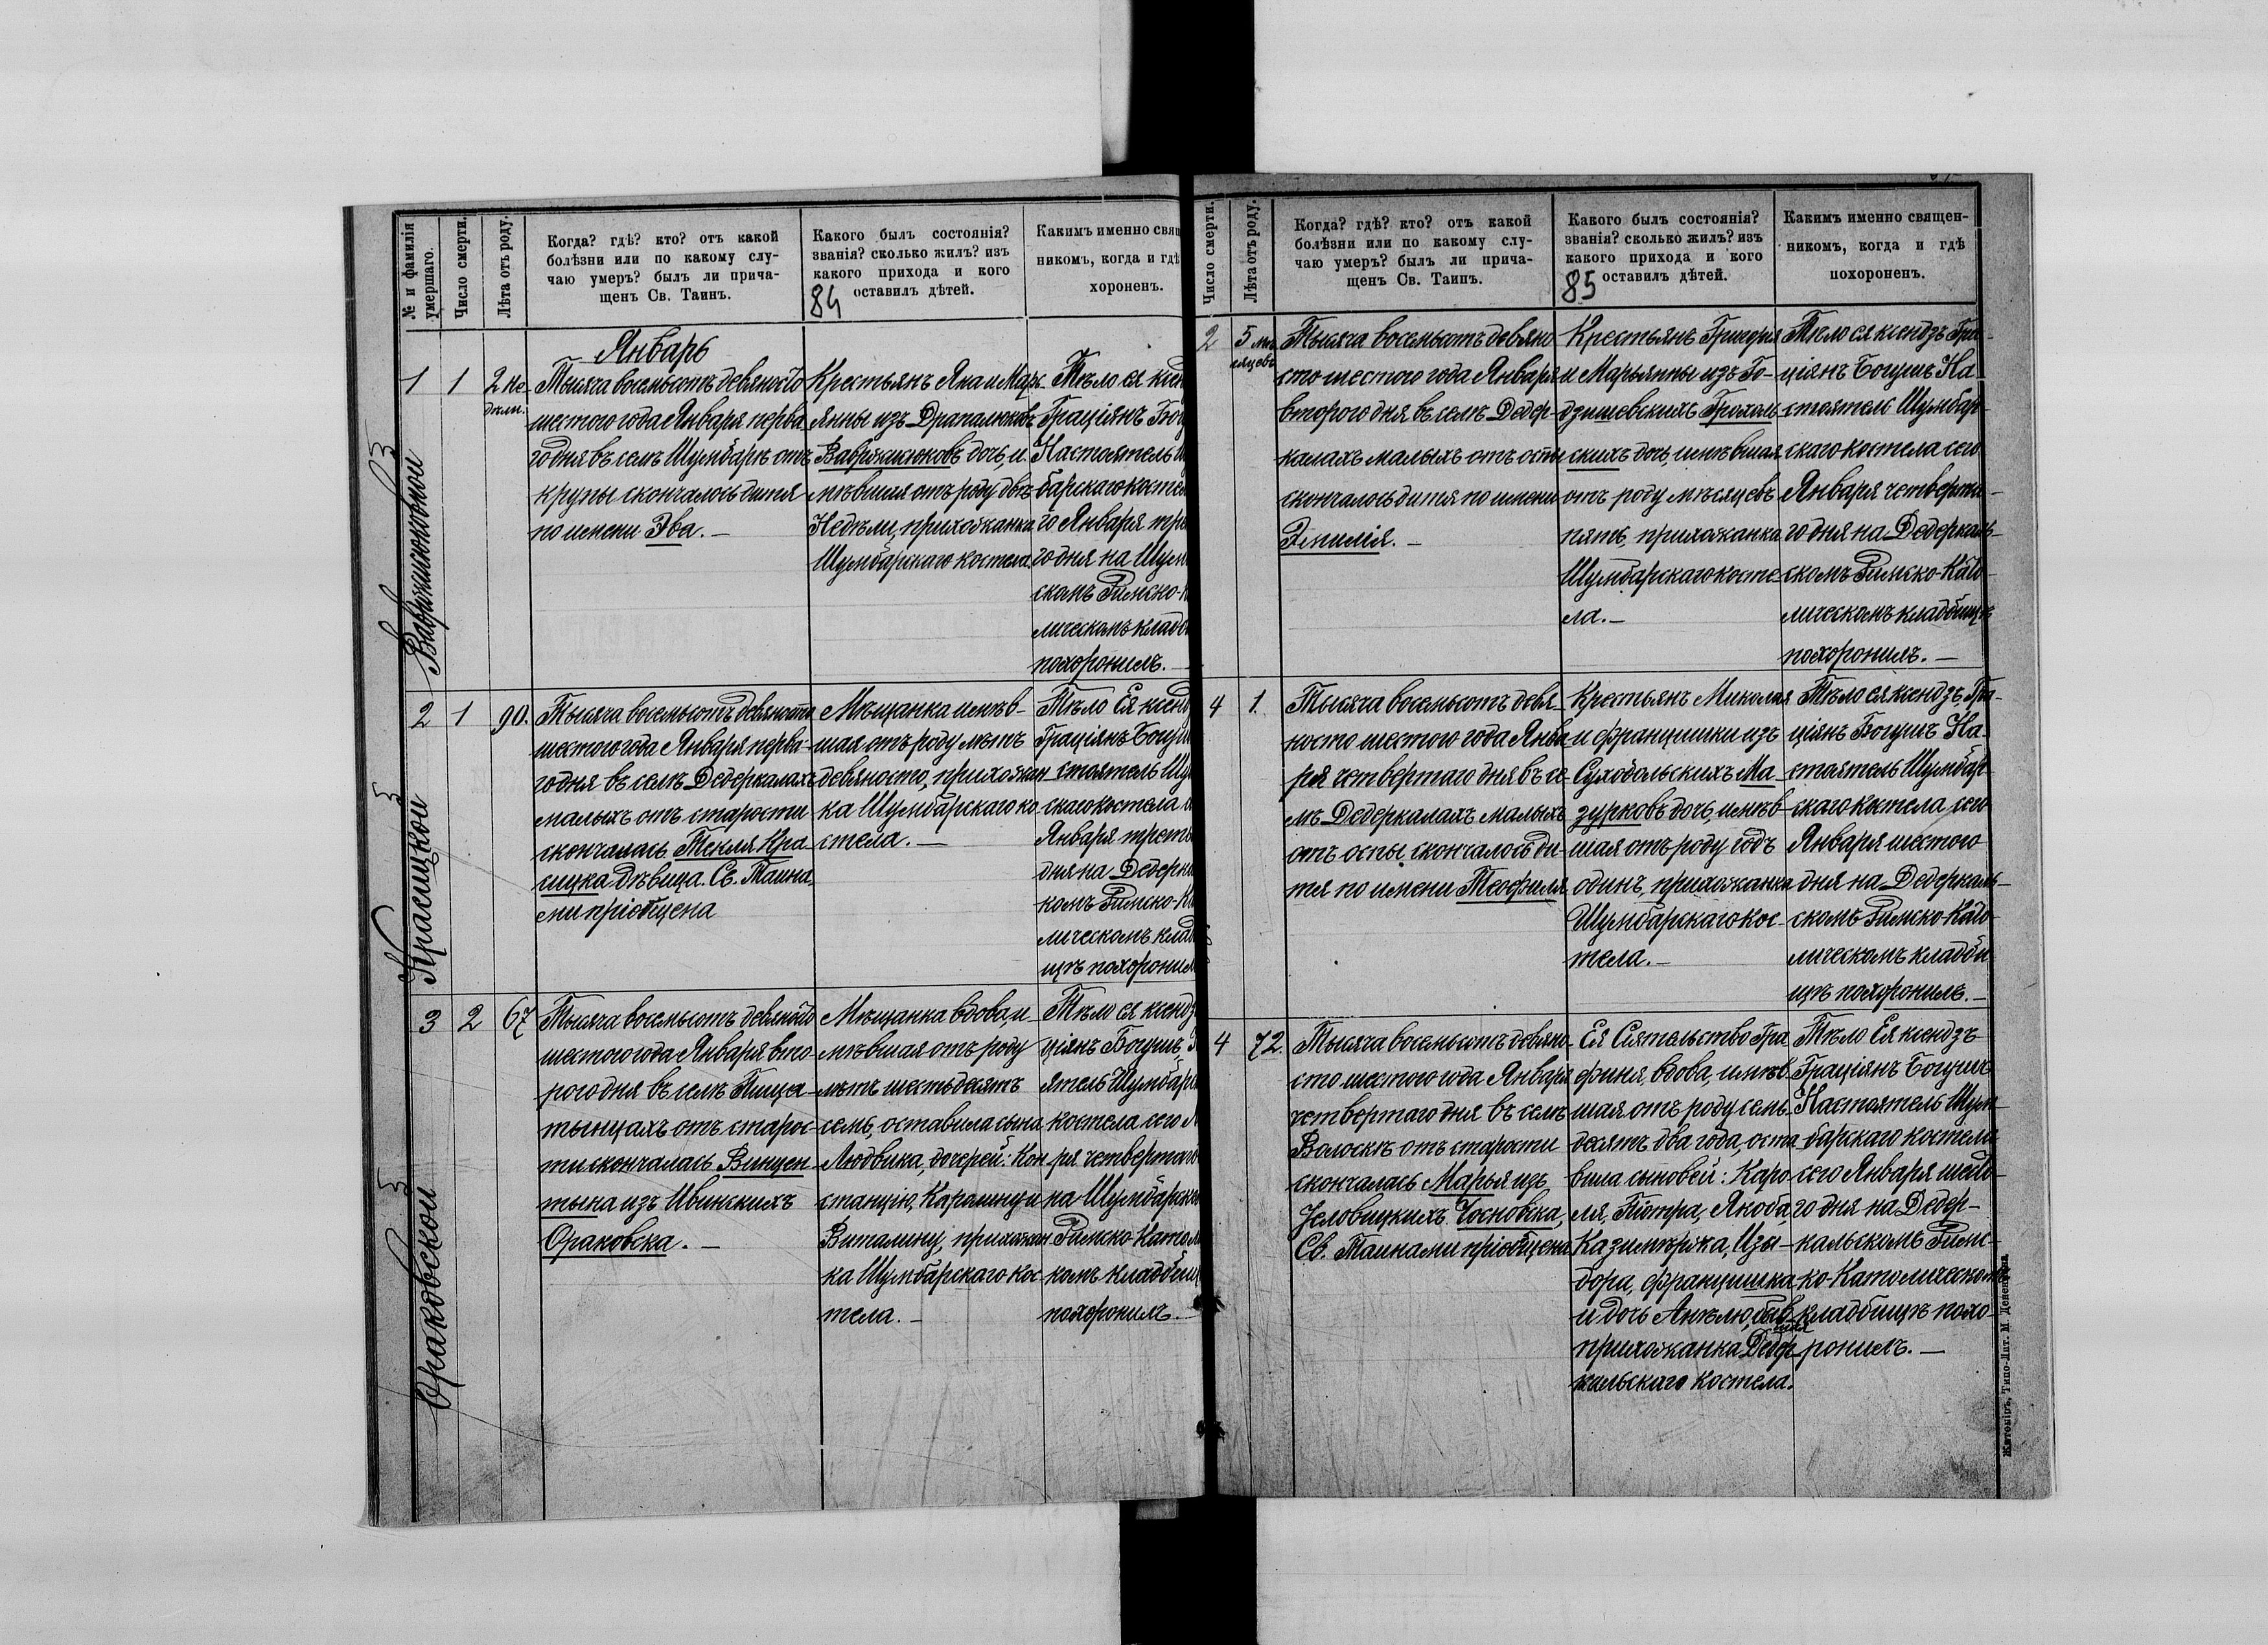 № и фамилія умершаго.
Число смерти.
Лѣта отъ роду.
Когда? гдѣ? кто? отъ какой
болѣзни или по какому слу-
чаю умеръ? былъ ли прича-
щенъ Св. Таинъ.
Какого былъ состоянія?
званія? сколько жилъ? изъ
какого прихода и кого
оставилъ дѣтей.
84
Какимъ именно свящ
никомъ, когда и гдѣ
хороненъ.
Январь
1
Вавржинюковой
1
2 не-
дѣли.
Тысяча восемьсотъ девяносто
шестого года Января перва
го дня въ селѣ Шумбарѣ отъ
крупы скончалось дитя
по имени Эва. —
Крестьянъ Яна и Мары-
янны изъ Драпалюковъ
Вавржинюковъ дочь, и-
мѣвшая отъ роду двѣ
Недѣли, прихожанка
Шумбарскаго костела.
Тѣло ея ксен
Граціянъ Богу
Настоятель Ш
барскаго костел
го Января тре
го дня на Шумб
скомъ Римско-К
лическомъ кладб
похоронилъ. —
2
Красицкой
1
90.
Тысяча восемьсотъ девяносто
шестого года Января перва-
го дня въ селѣ Дедеркалахъ
малыхъ отъ старости
скончалась Текля Кра-
сицка дѣвица. Св. Таина-
ми пріобщена
Мѣщанка имѣв-
шая отъ роду лѣтъ
девяносто, прихожан-
ка Шумбарскаго ко-
стела. —
Тѣло Ея ксенд
Граціянъ Богуш
стоятель Шу
скаго костела с
Января треть
дня на Дедерка
комъ Римско-К
лическомъ клад
щѣ похоронил
3
Ораковской
2
67
Тысяча восемьсотъ девяносто
шестого года Января вто-
рого дня въ селѣ Пища-
тынцахъ отъ старос-
ти скончалась Винцен-
тына изъ Ивинскихъ
Ораковска. —
Мѣщанка вдова, и-
мѣвшая отъ роду
лѣтъ шестьдесятъ
семь, оставила сына
Людвика, дочерей: Кон-
станцію, Каролину и
Виталину, прихожан-
ка Шумбарскаго кос-
тела. —
Тѣло ея ксендз
ціянъ Богушъ,
ятель Шумбарс
костела сего Я
ря четвертаго
на Шумбарско
Римско-Катол
комъ кладбищ
похоронилъ. —
Число смерти.
Лѣта отъ роду.
Когда? гдѣ? кто? отъ какой
болѣзни или по какому слу-
чаю умеръ? былъ ли прича-
щенъ Св. Таинъ.
Какого былъ состоянія?
званія? сколько жилъ? изъ
какого прихода и кого
оставилъ дѣтей.
85
Какимъ именно священ-
никомъ, когда и гдѣ
похороненъ.
2
5 мѣ-
сяцевъ
Тысяча восемьсотъ девяно-
сто шестого года Января
второго дня въ селѣ Дедер-
калахъ малыхъ отъ оспы
скончалось дитя по имени
Эмилія. —
Крестьянъ Григорія
и Марьянны изъ Го-
дзишевскихъ Грохоль-
скихъ дочь, имѣвшая
отъ роду мѣсяцевъ
пять, прихожанка
Шумбарскаго косте-
ла. —
Тѣло ея ксендзъ Гра-
ціянъ Богушъ На-
стоятель Шумбар-
скаго костела сего
Января четверта-
го дня на Дедеркаль-
скомъ Римско-Като-
лическомъ кладбищѣ
похоронилъ. —
4
1.
Тысяча восемьсотъ девя-
носто шестого года Янва-
ря четвертаго дня въ се-
лѣ Дедеркалахъ малыхъ
отъ оспы скончалось ди-
тя по имени Теофиля
Крестьянъ Миколая
и Францишки изъ
Суходольскихъ Ма-
зурковъ дочь, имѣв-
шая отъ роду годъ
одинъ, прихожанка
Шумбарскаго кос-
тела. —
Тѣло ея ксендзъ Гра-
ціянъ Богушъ На-
стоятель Шумбар-
скаго костела сего
Января шестого
дня на Дедеркаль-
скомъ Римско-Като-
лическомъ кладби-
щѣ похоронилъ. —
4
72.
Тысяча восемьсотъ девяно-
сто шестого года Января
четвертаго дня въ селѣ
Волоскѣ отъ старости
скончалась Марья изъ
Еловицкихъ Чосновска,
Св. Таинами пріобщена
Ея Сіятельство Гра-
финя, вдова, имѣв-
шая отъ роду семь-
десятъ два года, оста-
вила сыновей: Каро-
ля, Піотра, Якоба,
Казимѣржа, Изы-
дора, Францишка
и дочь Анѣлю, быв-
шая
прихожанка Дедер-
кальскаго костела.
Тѣло Ея ксендзъ
Граціянъ Богушъ
Настоятель Шум-
барскаго костела
сего Января шесто-
го дня на Дедер-
кальскомъ Римс-
ко-Католическомъ
кладбищѣ похо-
ронилъ. —
Житоміръ, Типо-Лит. М. Дененмана